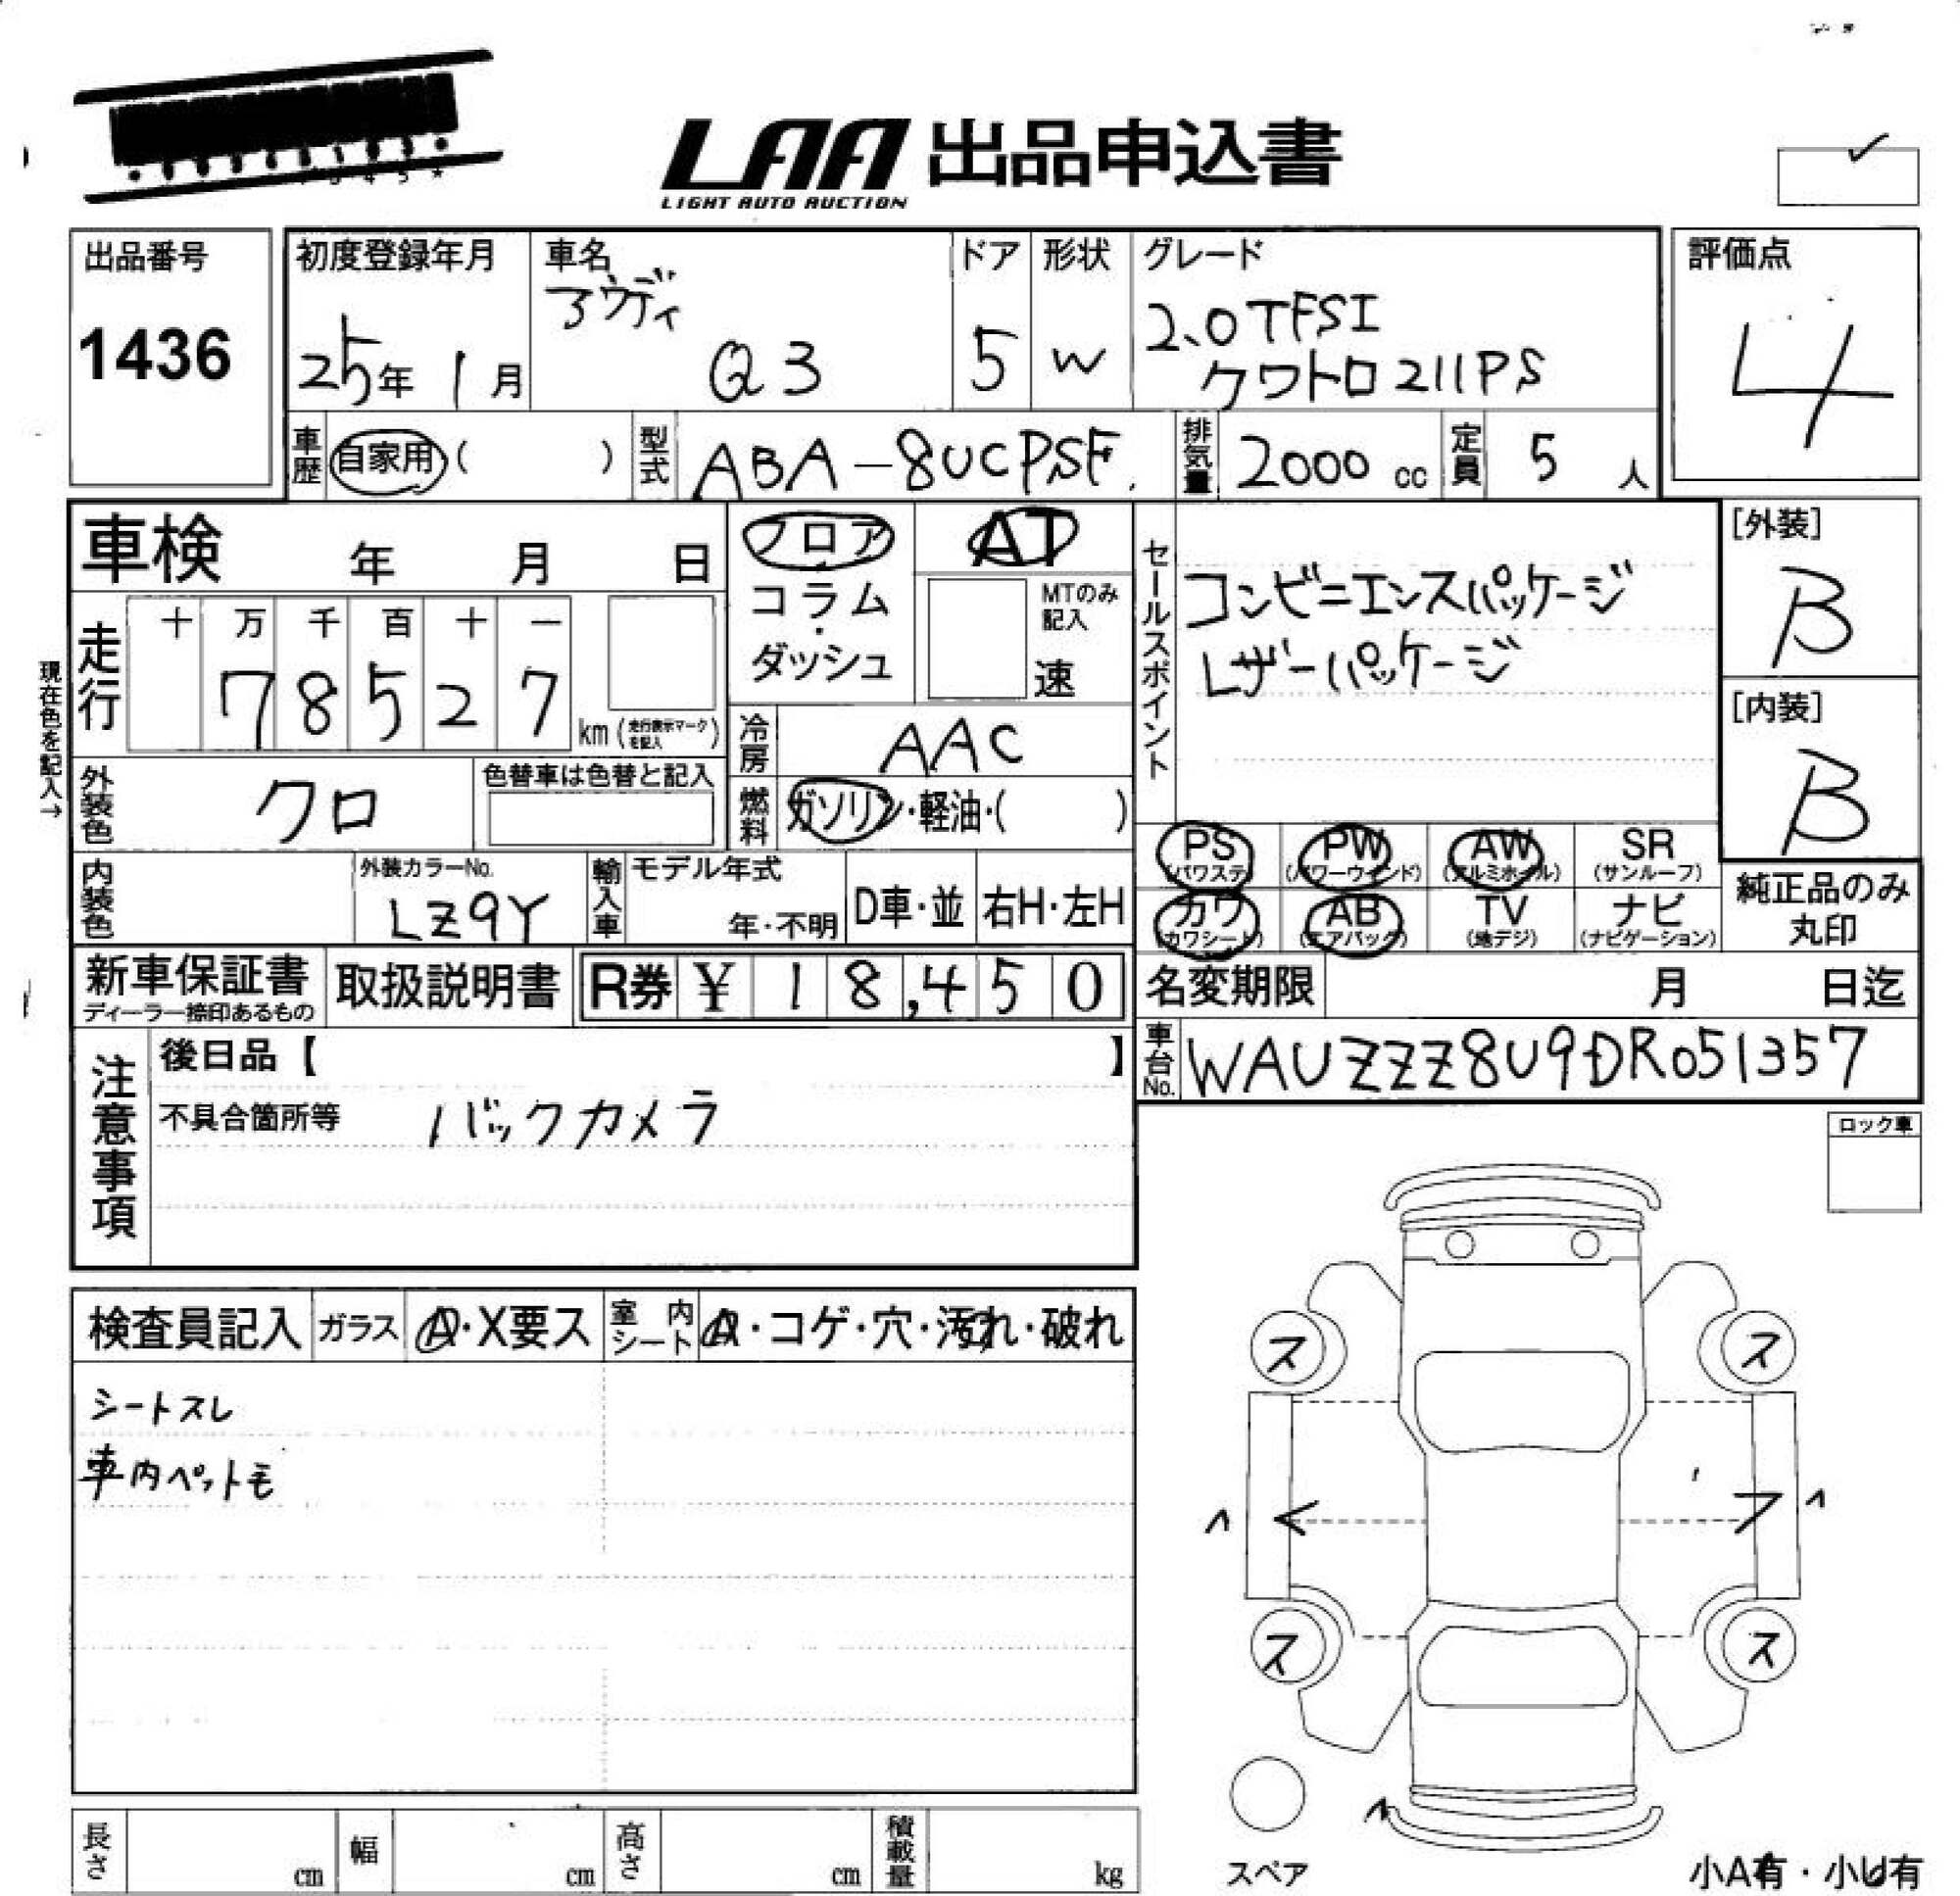 LAA 出品申込書
LIGHT AUTO AUCTION
出品番号
1436
初度登録年月
25年 1月
車名
アウディ
Q3
ドア
5
形状
W
グレード
2.0 TFSI
クワトロ 211PS
評価点
4
車歴
自家用 ( )
型式
ABA-8UCPSF
排気量
2000 cc
定員
5 人
車検 年 月 日
フロア
コラム・
ダッシュ
AT
MTのみ
記入
速
セールスポイント
コンビニエンスパッケージ
レザーパッケージ
[外装]
B
[内装]
B
現在色を記入→
走行
十 万 千 百 十 一
7 8 5 2 7
km (走行表示マークを記入)
冷房
AAC
外装色
クロ
色替車は色替と記入
燃料
ガソリン・軽油・( )
PS (パワステ)
PW (パワーウインド)
AW (アルミホイル)
SR (サンルーフ)
カワ (カワシート)
AB (エアバック)
TV (地デジ)
ナビ (ナビゲーション)
純正品のみ
丸印
内装色
外装カラーNo.
LZ9Y
輸入車
モデル年式
年・不明
D車・並
右H・左H
新車保証書
ディーラー捺印あるもの
取扱説明書
R券 ¥ 1 8,4 5 0
名変期限 月 日迄
車台No.
WAUZZZ8U9DR051357
注意事項
後日品【 】
不具合箇所等
バックカメラ
ロック車
検査員記入
ガラス
A・X要ス
室内シート
・コゲ・穴・汚れ・破れ
シートスレ
車内ペット毛
ス
ス
^ <
フ ^
ス
ス
スペア
小A有・小U有
長さ cm
幅 cm
高さ cm
積載量 kg